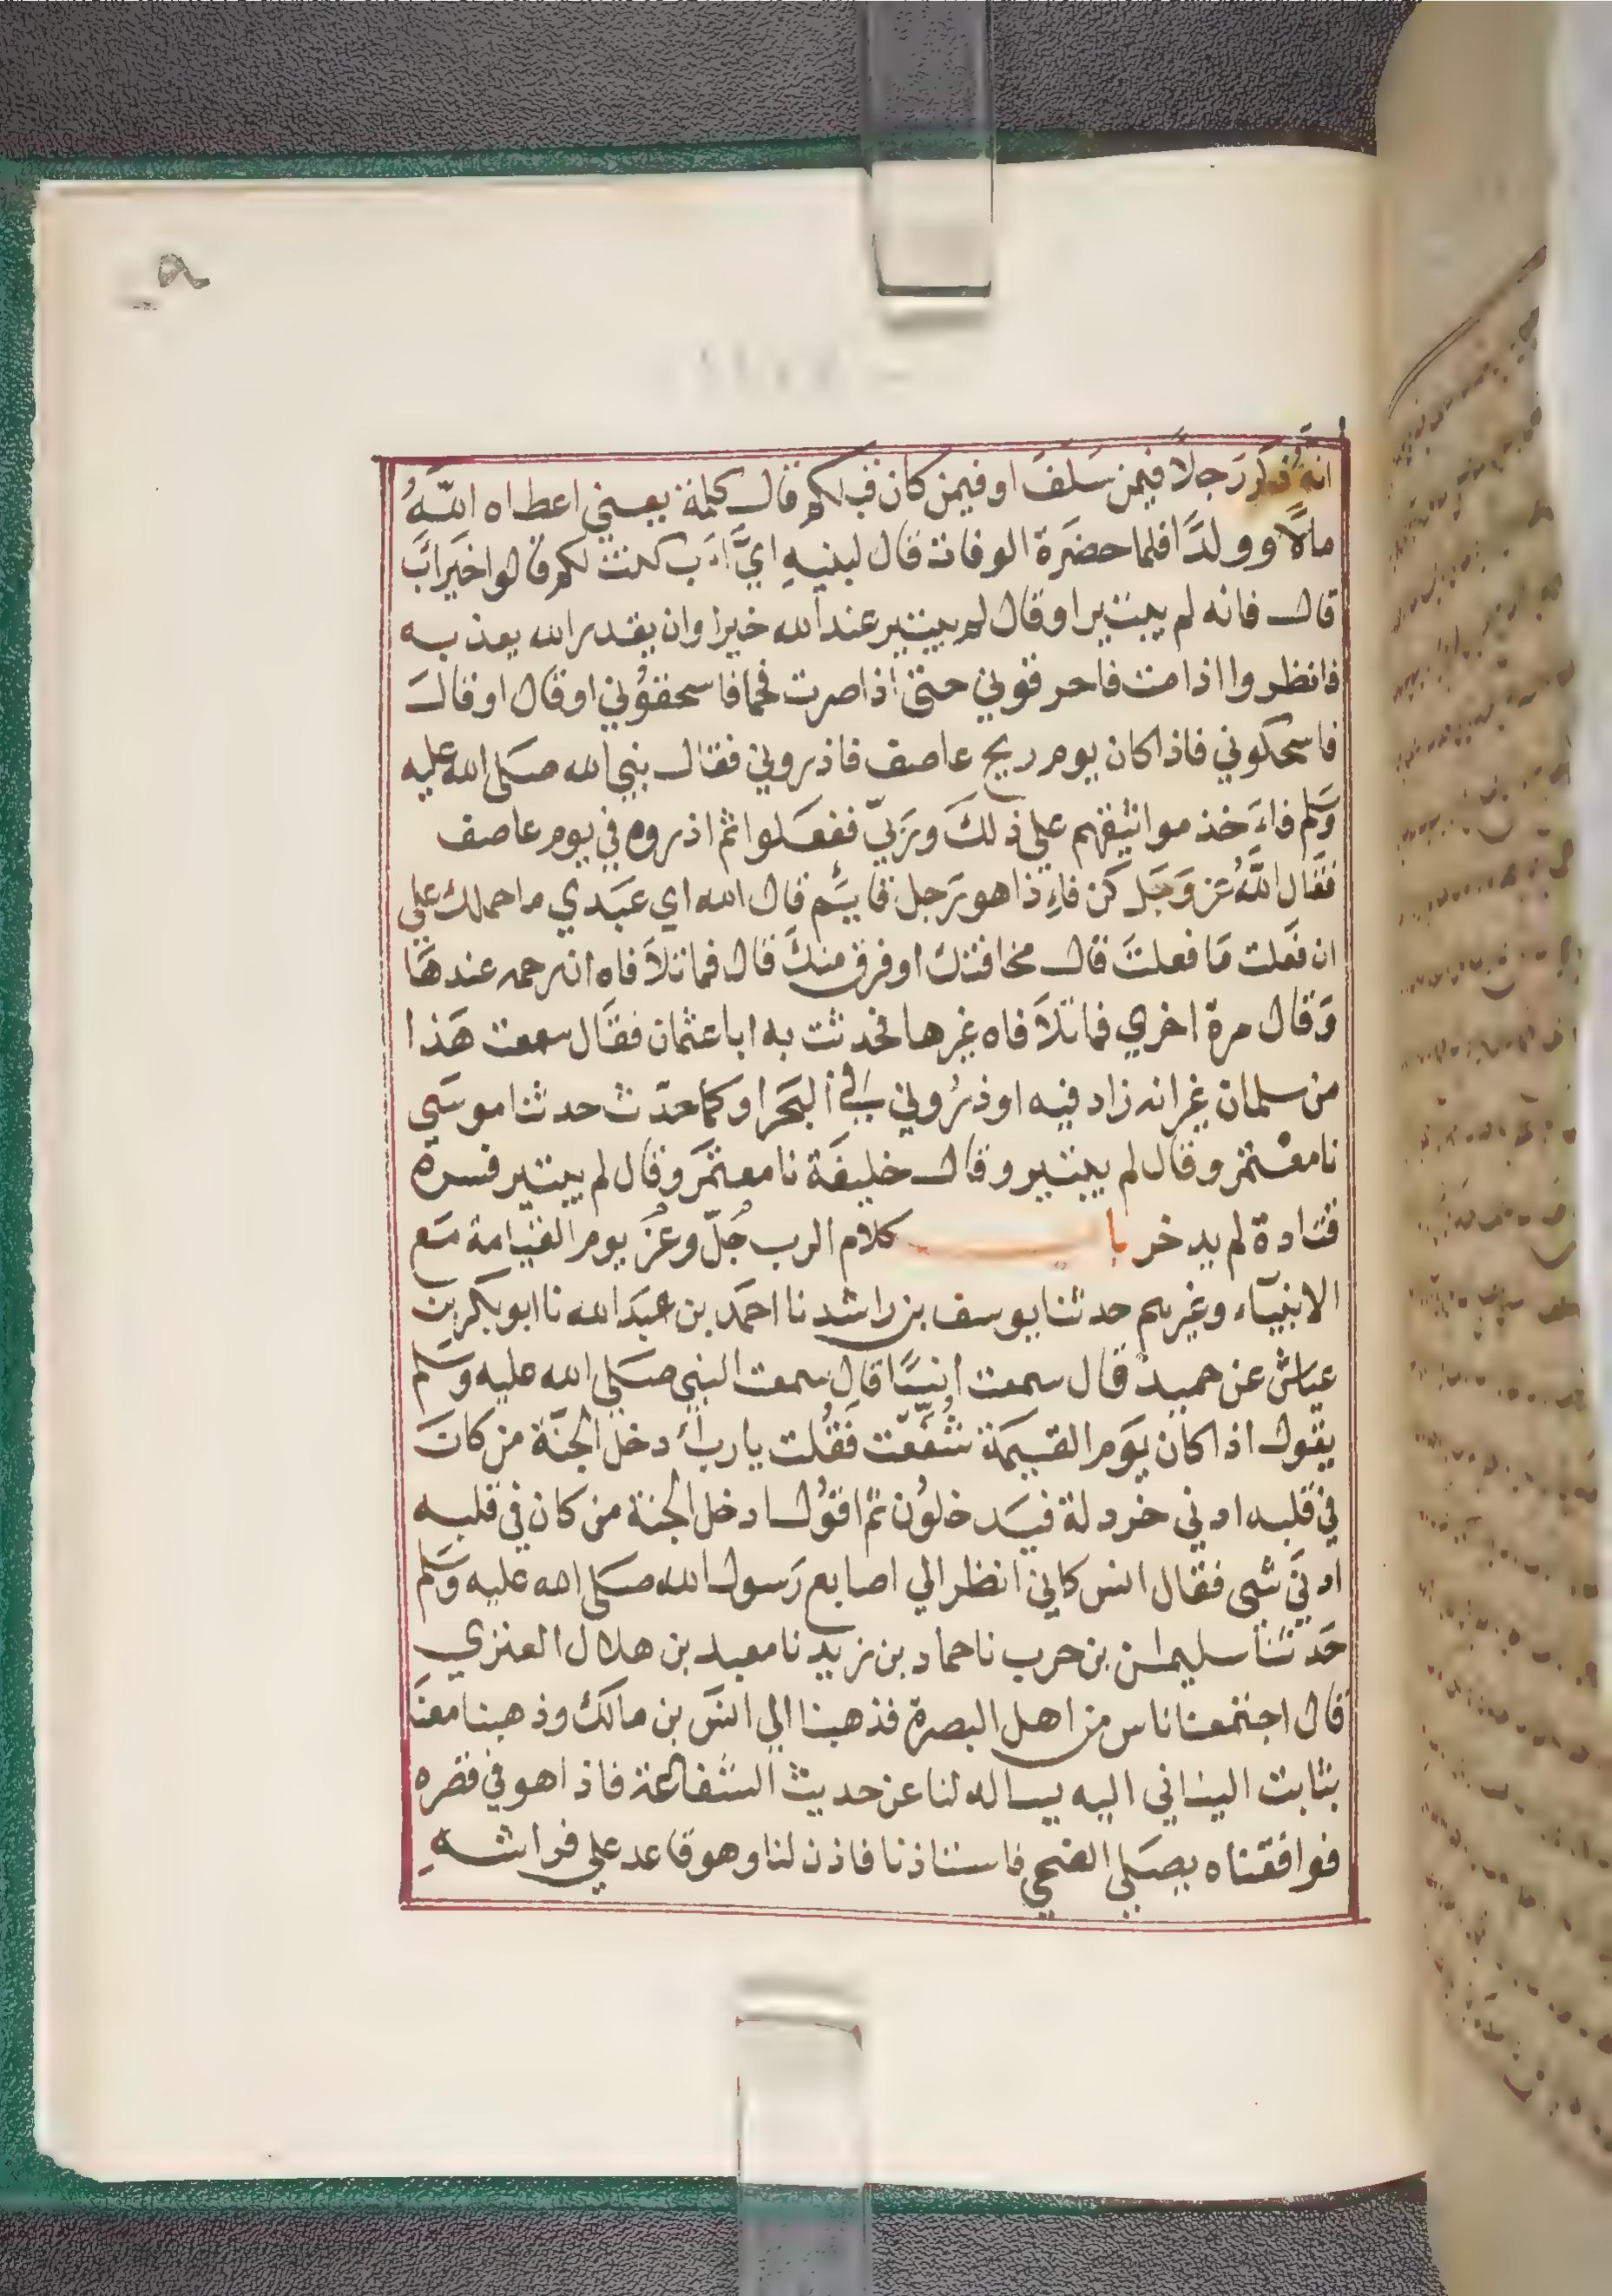 انهُ ذكر رَجلا فيمن سَلفَ او فيمن كان قبلكم قال كلمة يعني اعطاه اللّهُ
مالًا وولدًا فلما حضَرة الوفات قال لبنيهِ ايَّ اَب كنت لكم قالوا خيَر ابَ
قال فانه لم يبتير او قال لم يبتير عند الله خيرا وان يقدر الله يعذبه
فانظروا اذا مت فاحرقوني حتى اذا صرت فحما فاسحقوُني او قال او قالَ
فاسحكوني فاذا كان يوم ريح عاصف فاذروني فقال نبي الله صَلى الله عليه
وَسَلم فاءَخذ مواثيقهم علي ذلكَ ورَبيّ ففعَلوا ثم اذروه في يوم عاصف
فقَال اللّهُ عز وَجَل كن فاءِذا هو رَجل قايَم قال الله اي عبَدي ما حملك علي
ان فعَلت مَا فعلتَ قال مخافتك او فرق منكَ قال فما تلاَفاه ان رحمه عندهَا
وَقال مرة اخري فما تلاَفاه غيرها فحدثت به ابا عثمان فقَال سمعت هَذا
من سلمان غير انه زاد فيه اوذرُوني في البَحَر او كما حدّث حدثنا موسَي
نا معْتمر وقال لم يبتير وقال خليفَة نا معتمَر وقال لم يبتير فسره
قتادة لم يدخر باب كلام الرب جُلّ وعُزَ يوم القيامة مَع
الانبيَآء وغيرهم حدثنا يوسف بن راشد نا احمَد بن عبَد الله نا ابو بكر بن
عيَاش عن حميد قال سمعت انسًا قال سمعت النبي صَلى الله عليه وسَلم
يقول اذا كان يَوم القيمَة شُفّعَت فَقُلت يا رب أدخل الجنّة من كانَ
في قلبه ادني خردلة فيَدخلوُن ثم اقوُل ادخل الجنة من كان في قلبه
ادنيَ شي فقال انس كاني انظر الي اصابع رَسول الله صَلى الله عليه وَسَلم
حَدثنَا سليمان بن حرب نا حماد بن زيد نا معبد بن هلال العنزي
قال اجتمعنا ناس من اهل البصرة فذهبنا الي انسَ بن مالكَ وذهبنا معنَا
بثابت البناني اليه يساله لنا عن حديث الشفاعة فاذا هو في قصره
فوافقناه يصَلي الضحي فاستاذنا فاذن لنا وهو قاعد علي فراشهِ